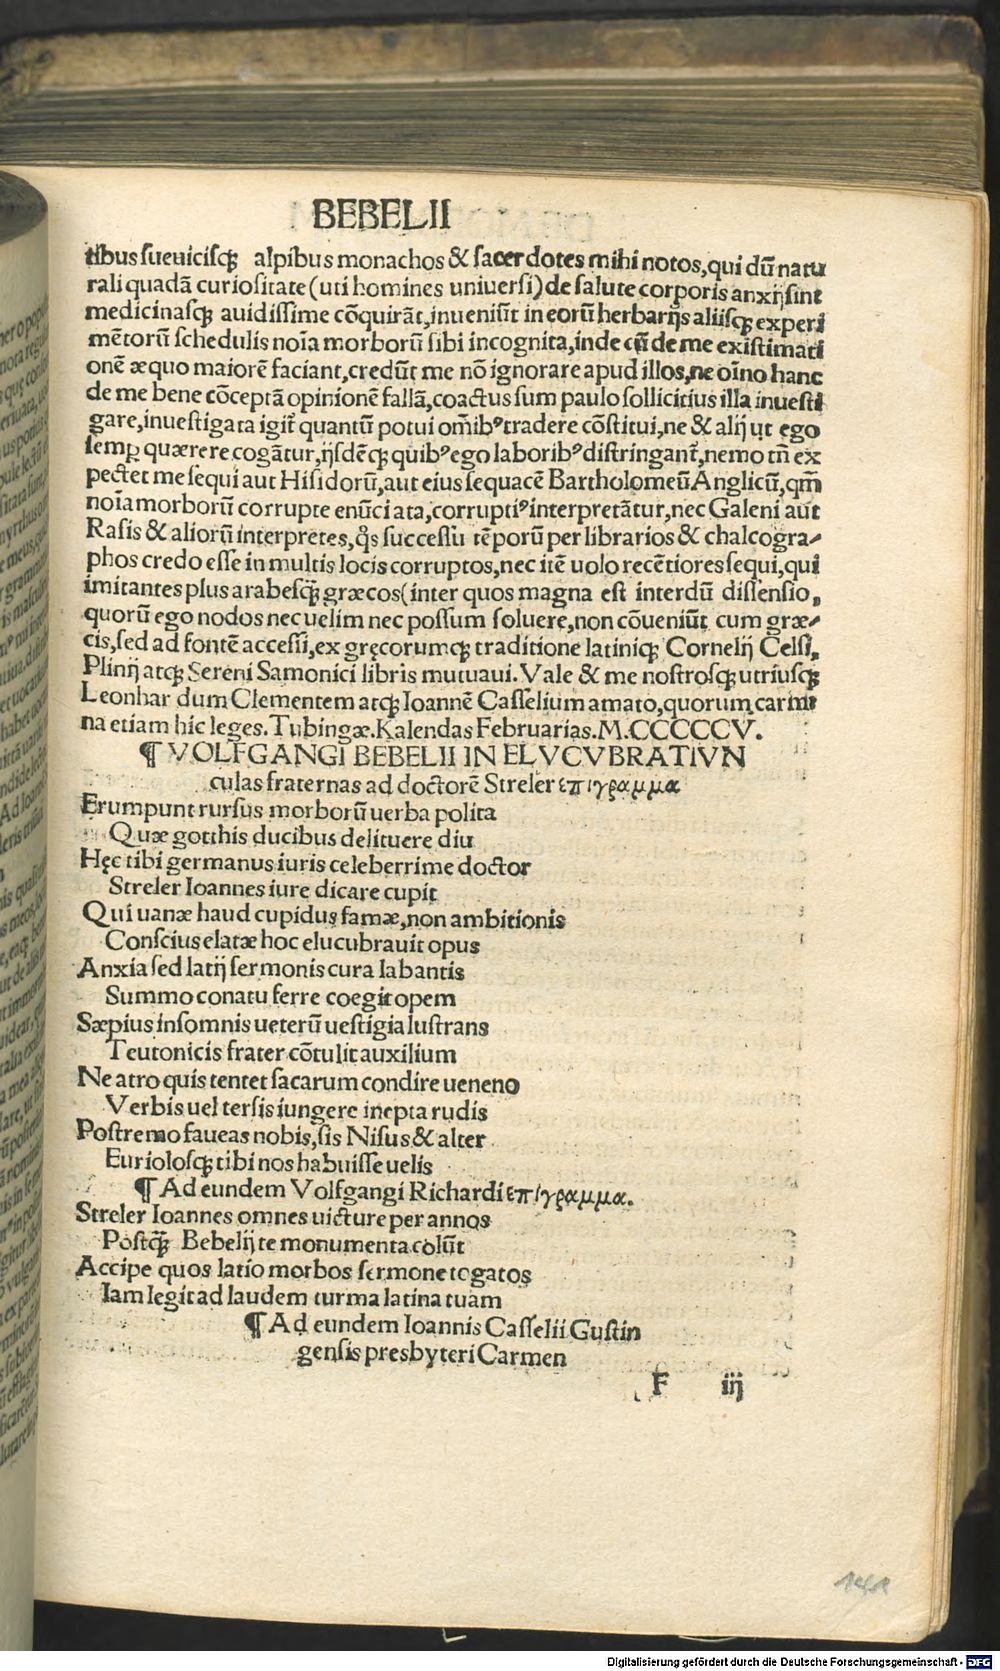 BEBELII
tibus sueuicisq꜒ alpibus monachos & sacerdotes mihi notos, qui dū natu
rali quadā curiositate (uti homines uniuersi) de salute corporis anxij sint
medicinasq꜒ auidissime cōquirāt, inueniūt in eorū herbarijs aliisq꜒ experi
mētorū schedulis noīa morborū sibi incognita, inde cū de me existimati
onē æquo maiorē faciant, credūt me nō ignorare apud illos, ne oīno hanc
de me bene cōceptā opinionē fallā, coactus sum paulo sollicitius illa inuesti
gare, inuestigata igit̄ quantū potui om̄ibꝰ tradere cōstitui, ne & alij ut ego
semꝑ quærere cogātur, ijsdēq꜒ quibꝰ ego laboribꝰ distringant̄, nemo tn̄ ex
pectet me sequi aut Hisidorū, aut eius sequacē Bartholomeū Anglicū, qm̄
noīa morborū corrupte enūciata, corruptiꝰ interpretātur, nec Galeni aut
Rasis & aliorū interpretes, qͦs successu tēporū per librarios & chalcogra-
phos credo esse in multis locis corruptos, nec itē uolo recētiores sequi, qui
imitantes plus arabesq꜒̄ græcos (inter quos magna est interdū dissensio,
quorū ego nodos nec uelim nec possum soluere, non cōueniūt cum græ-
cis, sed ad fontē accessi, ex gręcorumq꜒ traditione latiniq꜒ Cornelij Celsi,
Plinij atq꜒ Sereni Samonici libris mutuaui. Vale & me nostrosq꜒ utriusq꜒
Leonhardum Clementem atq꜒ Ioannē Casselium amato, quorum carmi
na etiam hic leges. Tubingæ. Kalendas Februarias. M.CCCCCV.
¶ VOLFGANGI BEBELII IN ELVCVBRATIVN
culas fraternas ad doctorē Streler επιγραμμα
Erumpunt rursus morborū uerba polita
Quæ gotthis ducibus delituere diu
Hęc tibi germanus iuris celeberrime doctor
Streler Ioannes iure dicare cupit
Qui uanæ haud cupidus famæ, non ambitionis
Conscius elatæ hoc elucubrauit opus
Anxia sed latij sermonis cura labantis
Summo conatu ferre coegit opem
Sæpius insomnis ueterū uestigia lustrans
Teutonicis frater cōtulit auxilium
Ne atro quis tentet sacarum condire ueneno
Verbis uel tersis iungere inepta rudis
Postremo faueas nobis, sis Nisus & alter
Euriolosq꜒ tibi nos habuisse uelis
¶ Ad eundem Volfgangi Richardi επιγραμμα.
Streler Ioannes omnes uicture per annos
Postq꜒̄ Bebelij te monumenta colūt
Accipe quos latio morbos sermone togatos
Iam legit ad laudem turma latina tuam
¶ Ad eundem Ioannis Casselii Gustin
gensis presbyteri Carmen
F iij
141
Digitalisierung gefördert durch die Deutsche Forschungsgemeinschaft - DFG